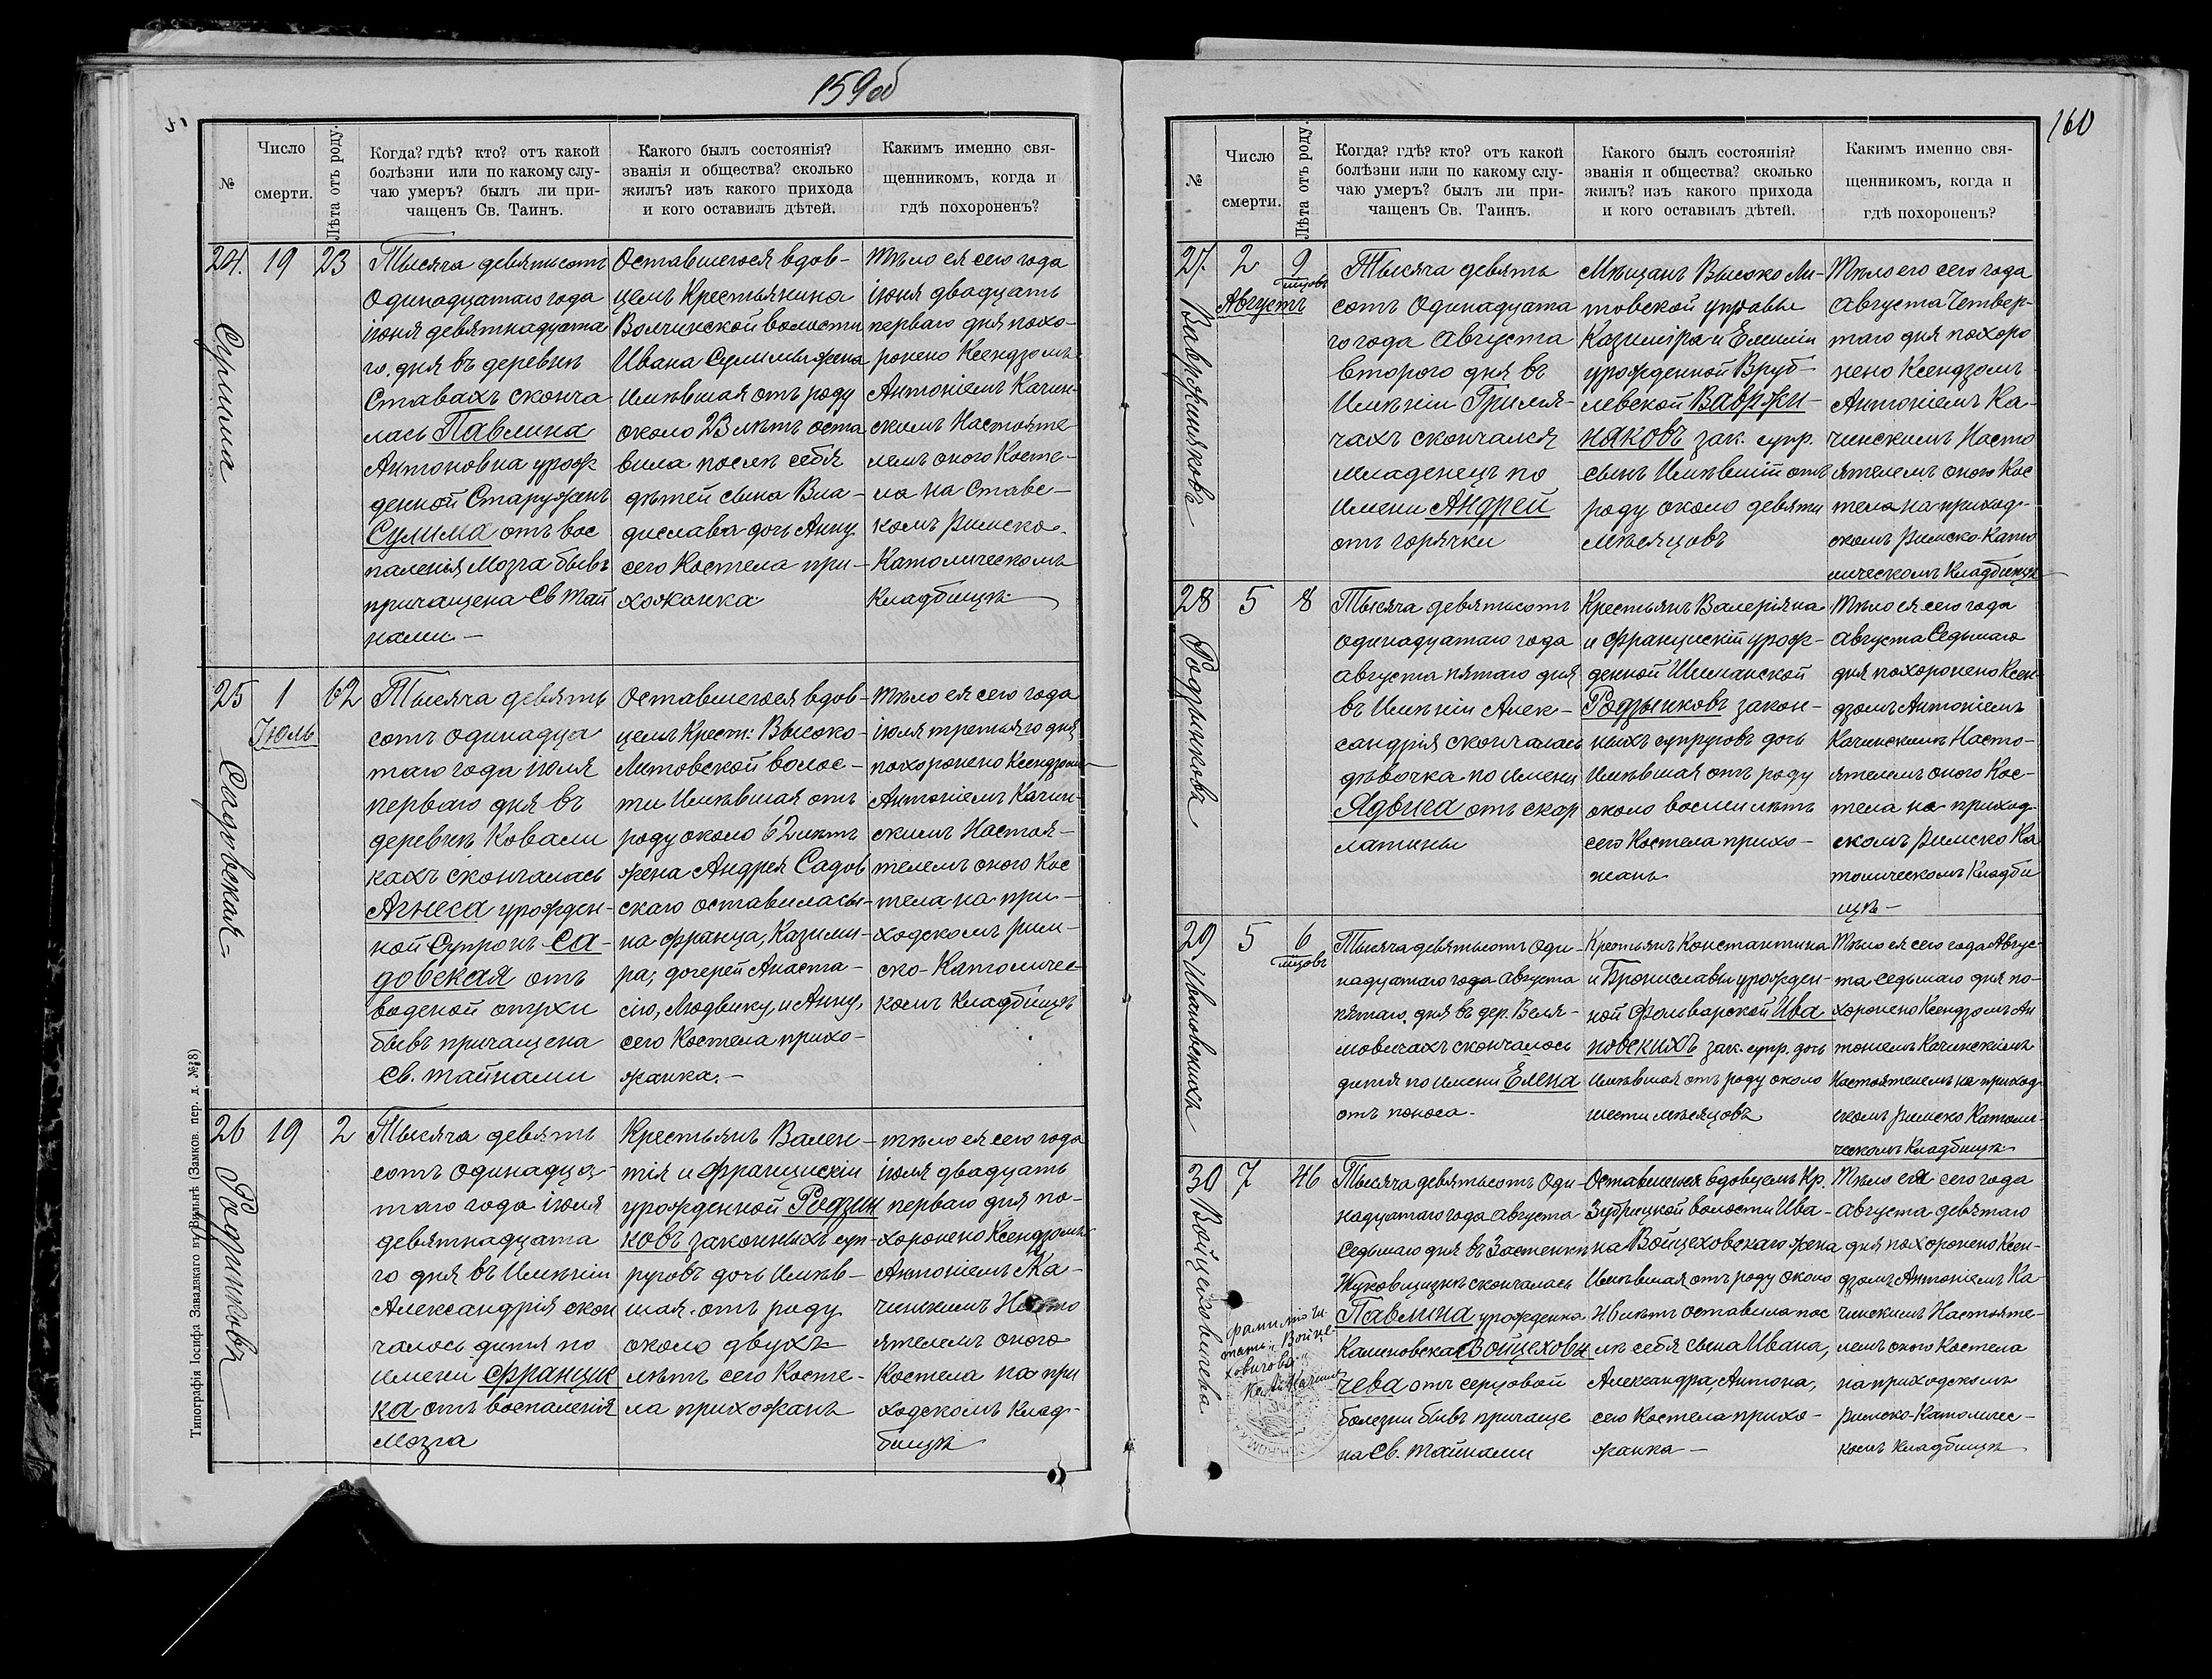 159об
№
Число
смерти.
Лѣта отъ роду.
Когда? гдѣ? кто? отъ какой
болѣзни или по какому слу-
чаю умеръ? былъ ли при-
чащенъ Св. Таинъ.
Какого былъ состоянія?
званія и общества? сколько
жилъ? изъ какого прихода
и кого оставилъ дѣтей.
Какимъ именно свя-
щенникомъ, когда и
гдѣ похороненъ?
24.
19
23
Сулима
Тысяча девятьсотъ
одинадцатаго года
іюня девятнадцата
го дня въ деревнѣ
Ставахъ сконча
лась Павлина
Антоновна урож
денной Старужикъ
Сулима отъ вос
паленія мозга бывъ
причащена Св Тай
нами —
Оставшегося вдов-
цемъ Крестьянина
Волчинской волости
Ивана Сулимы жена
имѣвшая отъ роду
около 23 лѣтъ оста
вила послѣ себя
дѣтей сына Вла-
дислава дочь Анну
сего Костела при-
хожанка
Тѣло ея сего года
іюня двадцать
перваго дня похо-
ронено Ксендзомъ
Антоніемъ Качин-
скимъ Настояте
лемъ оного Косте-
ла на Ставс-
комъ Римско-
Католическомъ
Кладбищѣ
25
1
Іюль
62
Садовская
Тысяча девять
сотъ одинадца
таго года іюля
перваго дня въ
деревнѣ Ковали
кахъ скончалась
Агнеса урожден-
ной Супронъ Са-
довская отъ
водяной опухи
бывъ причащена
Св. тайнами
Оставшегося вдов-
цемъ Крест: Высоко-
Литовской волос-
ти имѣвшая отъ
роду около 62 лѣтъ
жена Андрея Садов
скаго оставила сы-
на Франца, Казими-
ра, дочерей Анаста-
сію, Людвику, и Анну,
сего Костела прихо-
жанка. —
Тѣло ея сего года
іюля третьяго дня
похоронено Ксендзомъ
Антоніемъ Качин-
скимъ Настоя-
телемъ оного Кос
тела на при-
ходскомъ Рим-
ско-Католичес
комъ Кладбищѣ
26
19
2
Родзинковъ
Тысяча девять
сотъ одинадца-
таго года іюля
девятнадцата
го дня въ Имѣніи
Александрія скон
чалось дитя по
имени Франциш
ка отъ воспаленія
мозга
Крестьянъ Вален-
тія и Францискіи
урожденной Родзин
ковъ законныхъ суп-
руговъ дочь имѣв-
шая отъ роду
около двухъ
лѣтъ сего Косте-
ла прихожанъ
Тѣло ея сего года
іюля двадцать
перваго дня по-
хоронено Ксендзомъ
Антоніемъ Ка-
чинскимъ Насто
ятелемъ оного
Костела на при
ходскомъ клад-
бищѣ
Типографія Іосифа Завадзкаго въ Вильнѣ (Замков. пер. д. №8)
160
№
Число
смерти.
Лѣта отъ роду.
Когда? гдѣ? кто? отъ какой
болѣзни или по какому слу-
чаю умеръ? былъ ли при-
чащенъ Св. Таинъ.
Какого былъ состоянія?
званія и общества? сколько
жилъ? изъ какого прихода
и кого оставилъ дѣтей.
Какимъ именно свя-
щенникомъ, когда и
гдѣ похороненъ?
27.
2
Августъ
9
мцовъ
Вавржиняковъ
Тысяча девять
сотъ одинадцата
го года Августа
второго дня въ
Имѣніи Гримя-
чахъ скончался
младенецъ по
имени Андрей
отъ горячки
Мѣщанъ Высоко Ли-
товской управы
Казиміра и Емиліи
урожденной Вруб-
левской Вавржи-
наковъ зак. супр.
сынъ имѣвшій отъ
роду около девяти
мѣсяцовъ
Тѣло его сего года
Августа Четвер-
таго дня похоро
нено Ксендзомъ
Антоніемъ Ка-
чинскимъ Насто
ятелемъ оного Кос
тела на приход-
скомъ Римско-Като
лическомъ Кладбищѣ
28
5
8
Родзинкова
Тысяча девятьсотъ
одинадцатаго года
августа пятаго дня
въ Имѣніи Алек-
сандрія скончалась
дѣвочка по имени
Ядвига отъ скар
латины
Крестьянъ Валеріяна
и Францискій урож-
денной Шиманской
Родзынковъ закон-
ныхъ супруговъ дочь
имѣвшая отъ роду
около восьми лѣтъ
сего Костела прихо-
жанъ
Тѣло ея сего года
Августа Седьмаго
дня похоронено Ксен-
дзомъ Антоніемъ
Качинскимъ Насто-
ятелемъ оного Кос-
тела на приход-
скомъ Римско Ка
толическомъ Кладби
щѣ —
29
5
6
мцовъ
Ивановскихъ
Тысяча девятьсотъ оди-
надцатаго года Августа
пятаго дня въ дер. Веля-
мовичахъ скончалось
дитя по имени Елена
отъ поноса.
Крестьянъ Константина
и Брониславы урожден-
ной Фольварской Ива
новскихъ зак. супр. дочь
имѣвшая отъ роду около
шести мѣсяцовъ
Тѣло ея сего года Авгус-
та седьмаго дня по-
хоронено Ксендзомъ Ан
тоніемъ Качинскимъ
Настоятелемъ на приход
скомъ Римско Католи-
ческомъ Кладбищѣ
30
7
46
Войцеховичева
фамилію чи-
тать „Войце-
ховичова"
Тысяча девятьсотъ оди-
надцатаго года Августа
Седьмаго дня въ Застенкѣ
Жуковщизнѣ скончалась
Павлина урожденна
Калиновская Войцехови
чева отъ серцовой
болезни бывъ причаще
на Св. тайнами
Оставшегося вдовцемъ Кр.
Зубрицкой волости Ива-
на Войцеховскаго жена
имѣвшая отъ роду около
46 лѣтъ оставила пос
лѣ себя сына Ивана,
Александра, Антона,
сего Костела прихо-
жанка —
Тѣло ея сего года
Августа девятаго
дня похоронено Ксен-
дзомъ Антоніемъ Ка-
чинскимъ Настояте-
лемъ оного Костела
на приходскомъ
Римско-Католичес-
комъ кладбищѣ